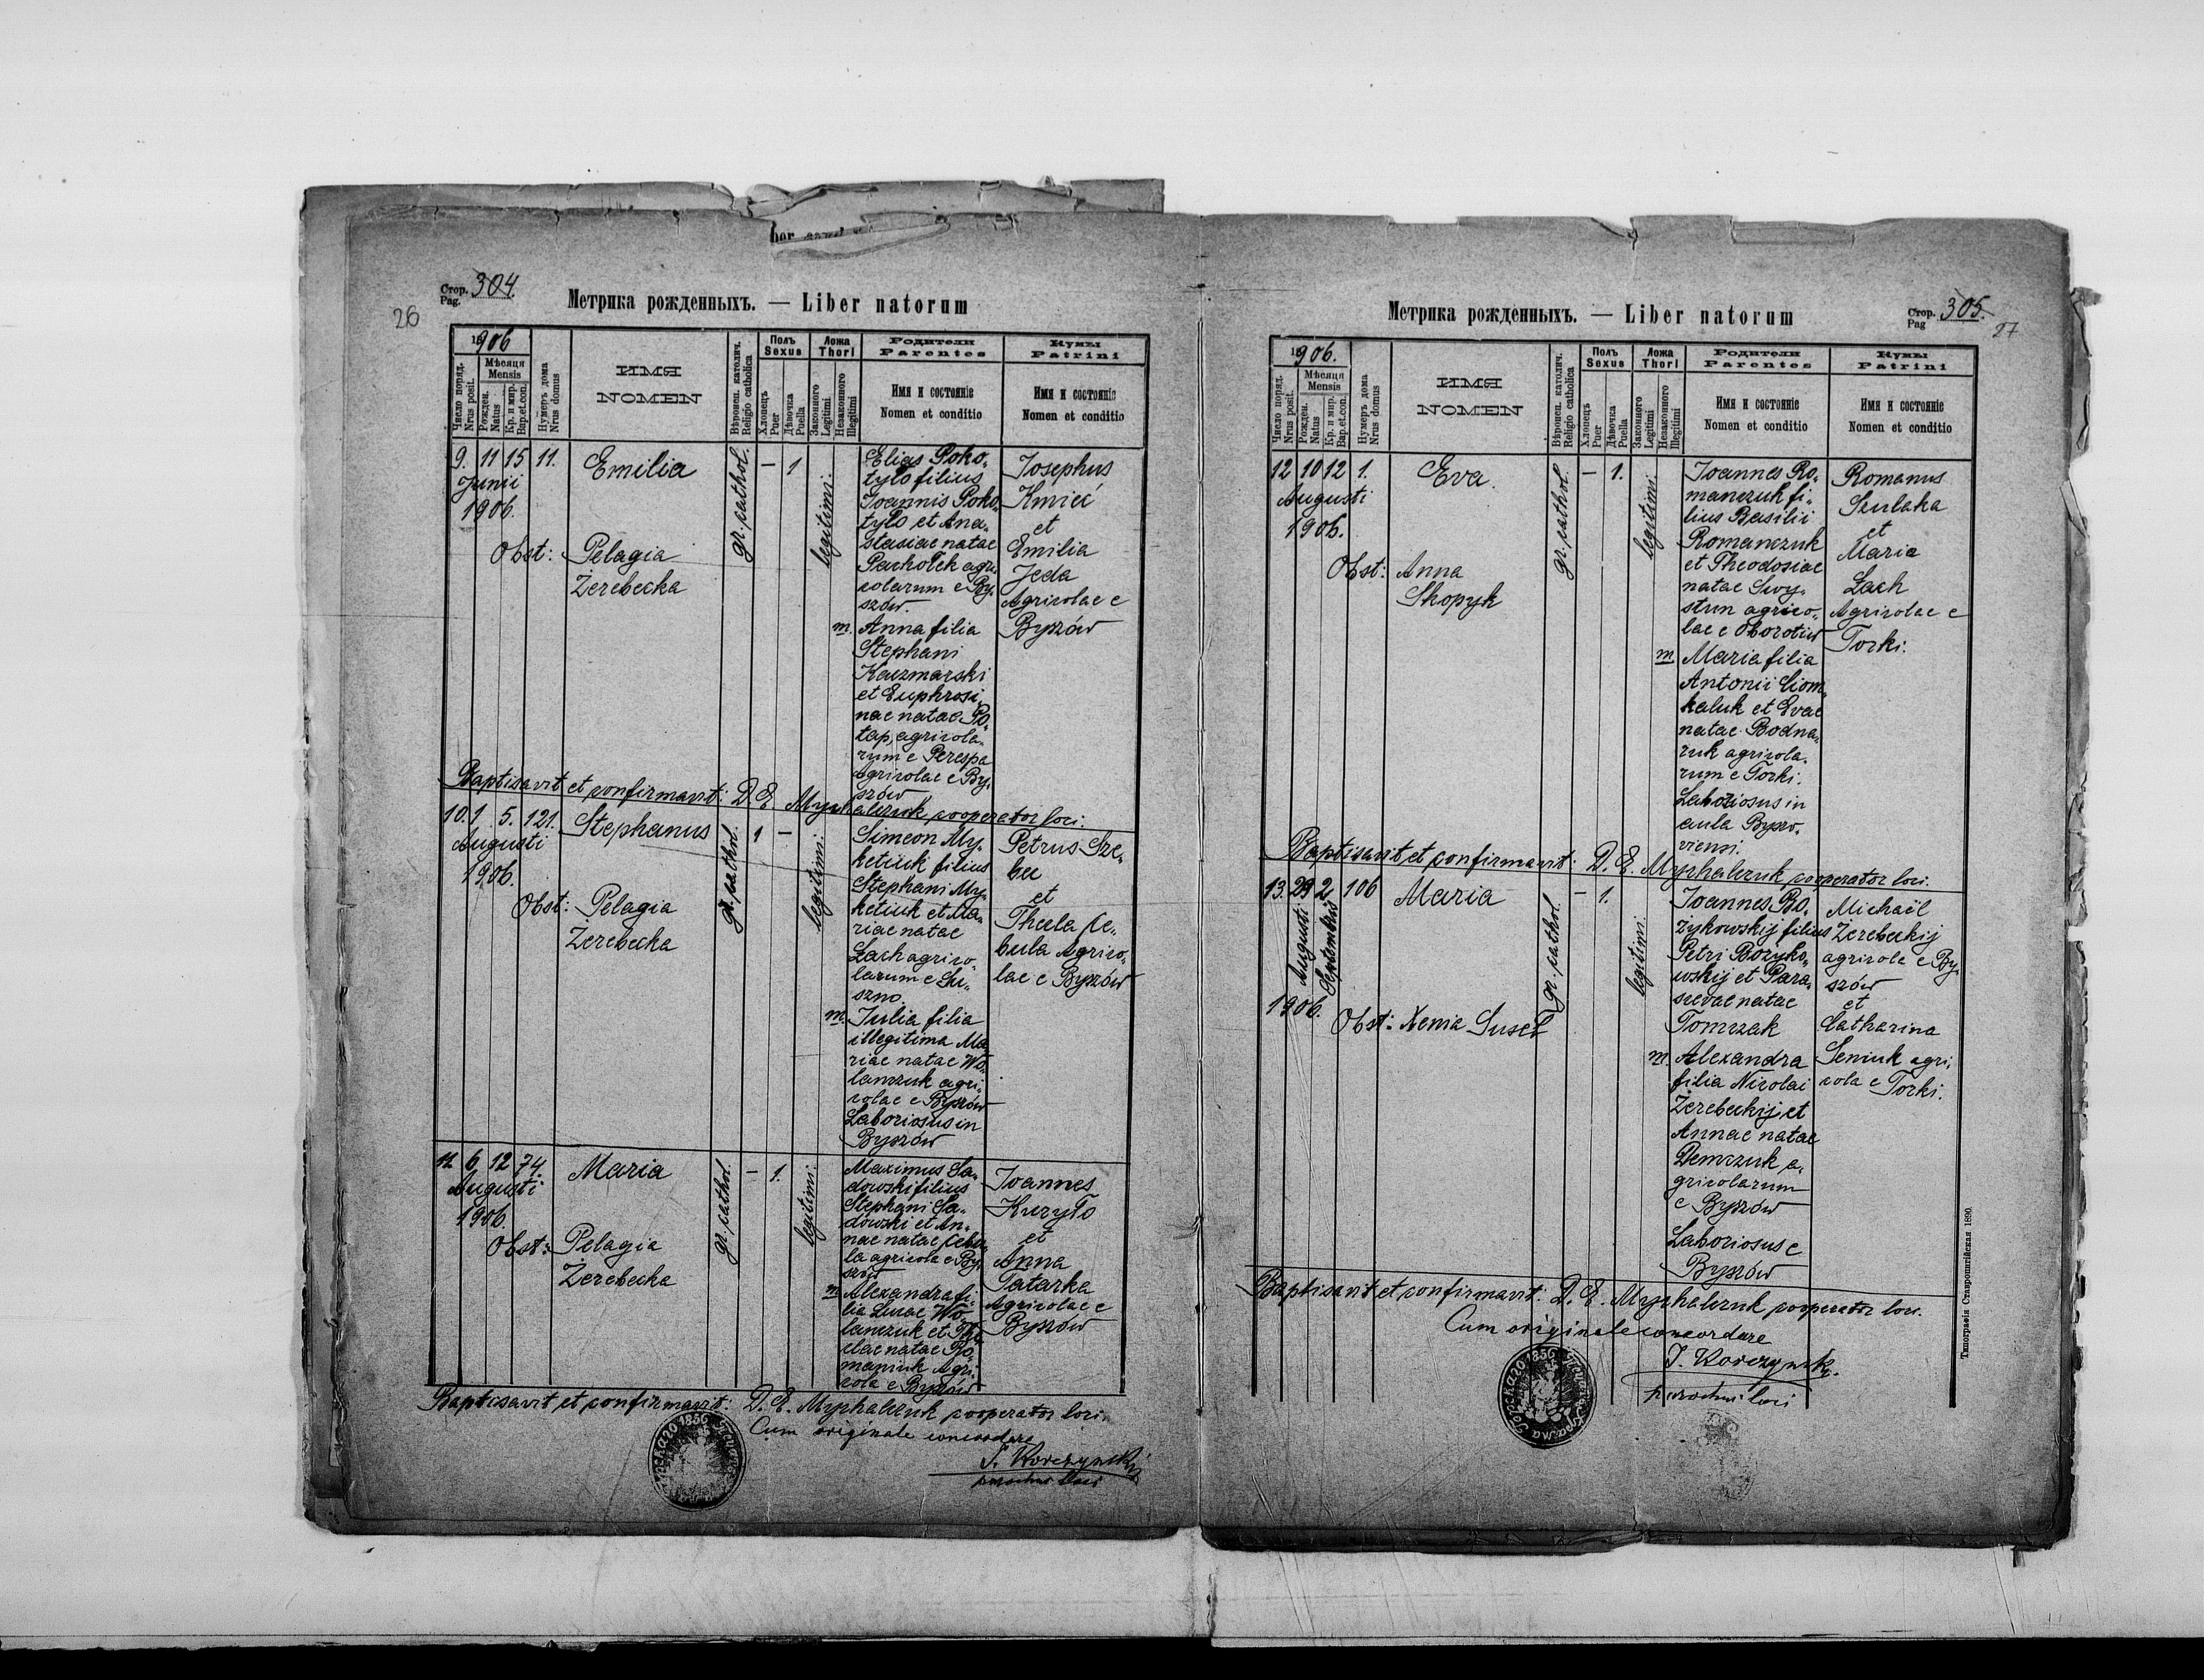 Стор. Pag. 304.
26
Метрика рожденныхъ. — Liber natorum
1906
Число поряд. Nrus posit.
Мѣсяця Mensis
Рожден. Natus
Кр. и мир. Bap.et.con.
Нумеръ дома Nrus domus
ИМЯ
NOMEN
Вѣроисп. католич. Religio catholica
Полъ Sexus
Хлопецъ Puer
Дѣвочка Puella
Ложа Thori
Законного Legitimi
Незаконного Illegitimi
Родители Parentes
Имя и состояніе
Nomen et conditio
Кумы Patrini
Имя и состояніе
Nomen et conditio
9. 11 15 11. Emilia
Junii
1906.
Obst: Pelagia
Zerebecka
gr. cathol.
– 1
legitimi.
Elias Poko-
tylo filius
Joannis Poko-
tylo et Ana-
stasiae natae
Parholek agri-
colarum e By-
szów.
m. Anna filia
Stephani
Kaczmarski
et Euphrosi-
nae natae Po-
tap, agricola-
rum e Perespa
Agricolae e By-
szów
Josephus
Kmieć
et
Emilia
Jeda
Agricolae e
Byszów
Baptisavit et confirmavit: D. E. Myhalczuk cooperator loci.
10. 1 5. 121. Stephanus
Augusti
1906.
Obst: Pelagia
Zerebecka
gr. cathol.
1 –
legitimi.
Simeon My-
ketiuk filius
Stephani My-
ketiuk et Ma-
riae natae
Lach agrico-
larum e Su-
szno.
m. Julia filia
illegitima Ma-
riae natae Wo-
lanczuk agri-
colae e Byszów
Laboriosus in
Byszów
Petrus Sze-
bec
et
Thecla Ce-
bula Agrico-
lae e Byszów
11 6 12 74. Maria
Augusti
1906.
Obst: Pelagia
Zerebecka
gr. cathol.
– 1.
legitimi.
Maximus Sa-
dowski filius
Stephani Sa-
dowski et An-
nae natae Cebu-
la agricola e By-
szów
m Alexandra fi-
lia Lucae Wo-
lanczuk et The-
clae natae Ro-
maniuk Agri-
cola e Byszów
Joannes
Kuryło
et
Anna
Tatarka
Agricolae e
Byszów
Baptisavit et confirmavit: D. E. Myhalczuk cooperator loci.
Cum originale concordare
J. Korczynskij
parochus loci
Метрика рожденныхъ. — Liber natorum
Стор. Pag 305.
27
1906.
Число поряд. Nrus posit.
Мѣсяця Mensis
Рожден. Natus
Кр. и мир. Bap.et.con.
Нумеръ дома Nrus domus
ИМЯ
NOMEN
Вѣроисп. католич. Religio catholica
Полъ Sexus
Хлопецъ Puer
Дѣвочка Puella
Ложа Thori
Законного Legitimi
Незаконного Illegitimi
Родители Parentes
Имя и состояніе
Nomen et conditio
Кумы Patrini
Имя и состояніе
Nomen et conditio
12 10 12 1. Eva.
Augusti
1906.
Obst: Anna
Skopyk
gr. cathol.
– 1.
legitimi.
Joannes Ro-
manczuk fi-
lius Basilii
Romanczuk
et Theodosiae
natae Swy-
stun agrico-
lae e Oborotiw
m Maria filia
Antonii Siom-
kaluk et Evae
natae Bodna-
ruk agricola-
rum e Torki.
Laboriosus in
aula Byszo-
viensi.
Romanus
Szulaka
et
Maria
Lach
Agricolae e
Torki.
Baptisavit et confirmavit: D. E. Myhalczuk cooperator loci.
13. 29 2 106 Maria
Augusti
Septembris
1906.
Obst: Xenia Susel
gr. cathol.
– 1.
legitimi.
Joannes Bo-
zykowskij filius
Petri Bozyko-
wskij et Para-
scevae natae
Tomczak
m. Alexandra
filia Nicolai
Zerebeckij et
Annae natae
Demczuk a-
gricolarum
e Byszów
Laboriosus e
Byszów
Michaël
Zerebeckij
agricola e By-
szów
et
Catharina
Seniuk agri-
cola e Torki.
Baptisavit et confirmavit: D. E. Myhalczuk cooperator loci.
Cum originale concordare
J. Korczynskij.
parochus loci
Типографія Ставропигійская 1890.